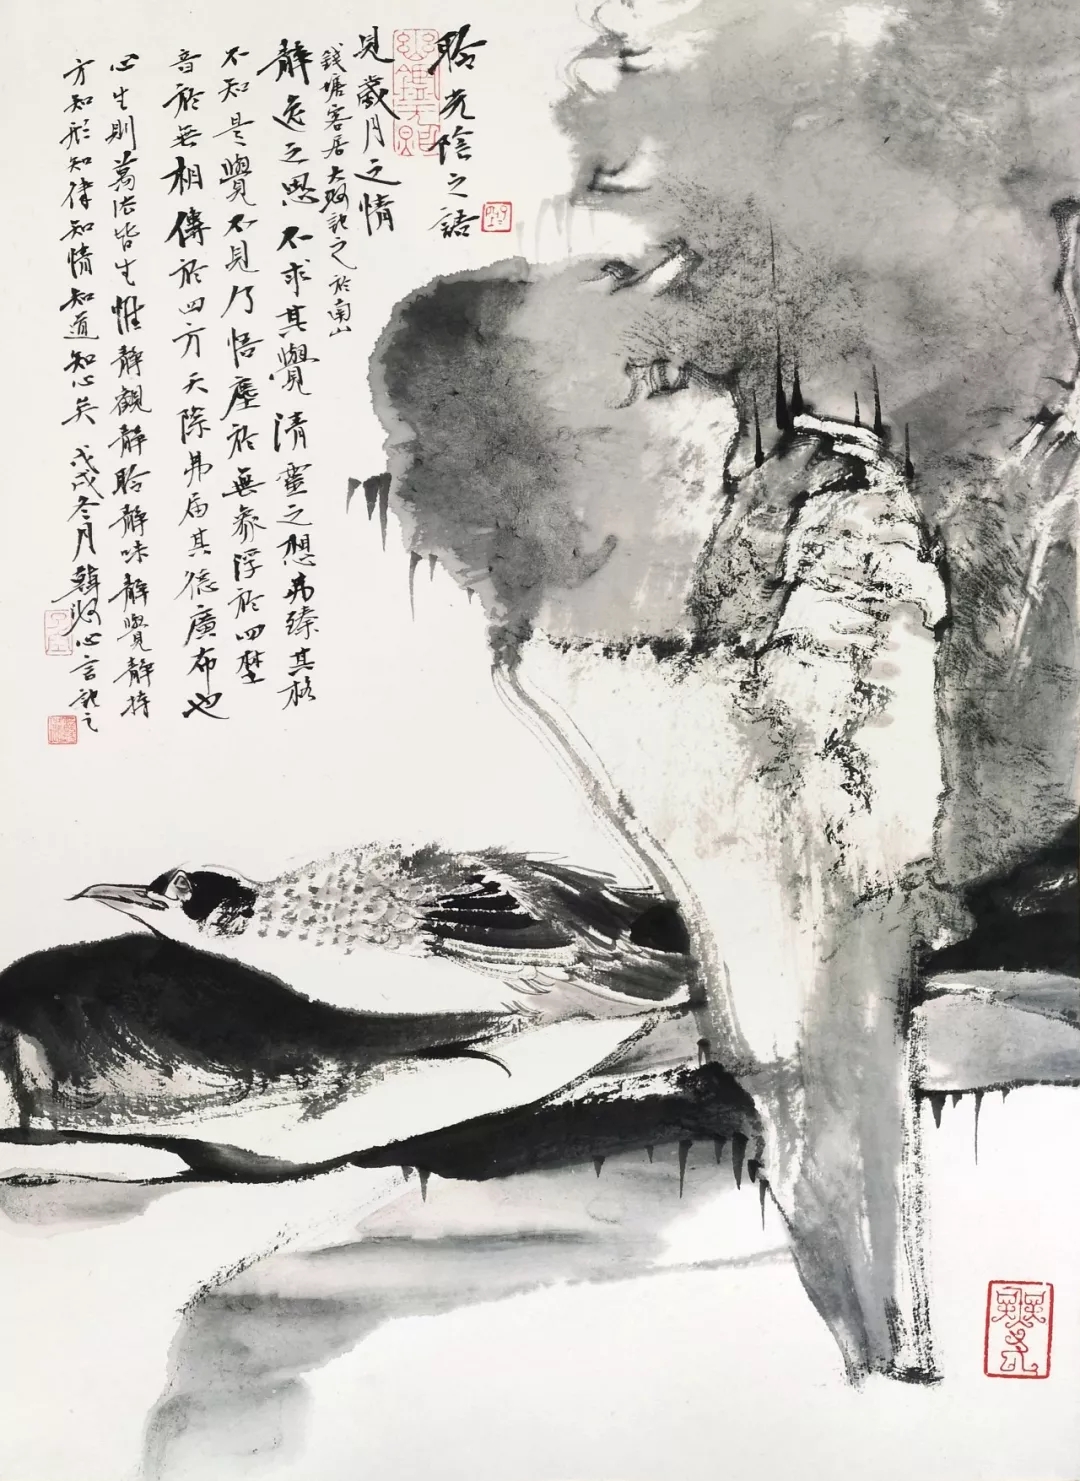 聆光陰之語
見歲月之情
錢塘客居大記之於南山
靜之思不求其覺清靈之想弗臻其格
不知是覺不見乃悟塵於無浮於四埜
音於無相傳於四方天際弗屆其德廣布也
心生則萬法皆生惟靜觀靜聆靜味靜覺靜持
方知形知律知情知道知心矣戊戌冬月韓心言記之